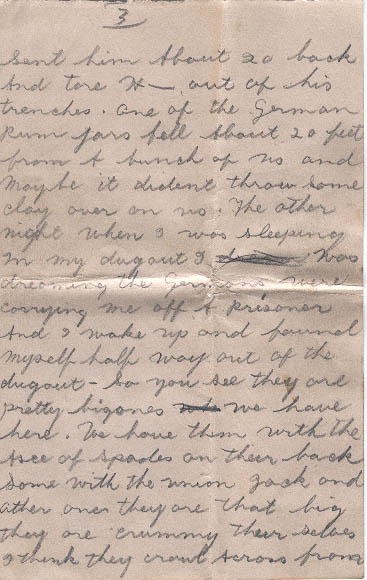 3
sent him About 20 back
And tore H— out of his
trenches. One of the German
Rum Jars fell About 20 feet
from A bunch of us and
Maybe it dident throw some
clay over on us. The other
night when I was sleeping
in my dugout I was
dreaming the Germans were
carrying me off A prisoner
And I wake up and found
Myself half way out of the
dugout - So you see they are
pretty big ones we have
here. We have them with the
Asce of Spades on their back
Some with the union Jack and
other ones they are that big
they are crummy their selves
I think they crawl Across from